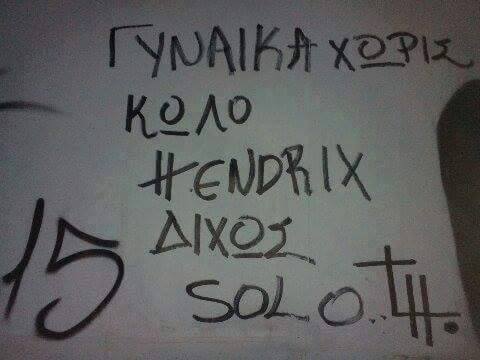 ΓΥΝΑΙΚΑ ΧΩΡΙΣ
ΚΩΛΟ
HENDRIX
ΔΙΧΩΣ
SOLO..
15